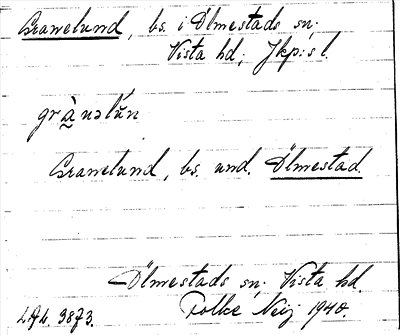 Granelund, bs. i Ölmestads sn;
Vista hd; Jkp:s l.
grànəlu̇n
Granelund, bs. und. Ölmestad.
Ölmestads sn; Vista hd.
Folke Neij 1940.